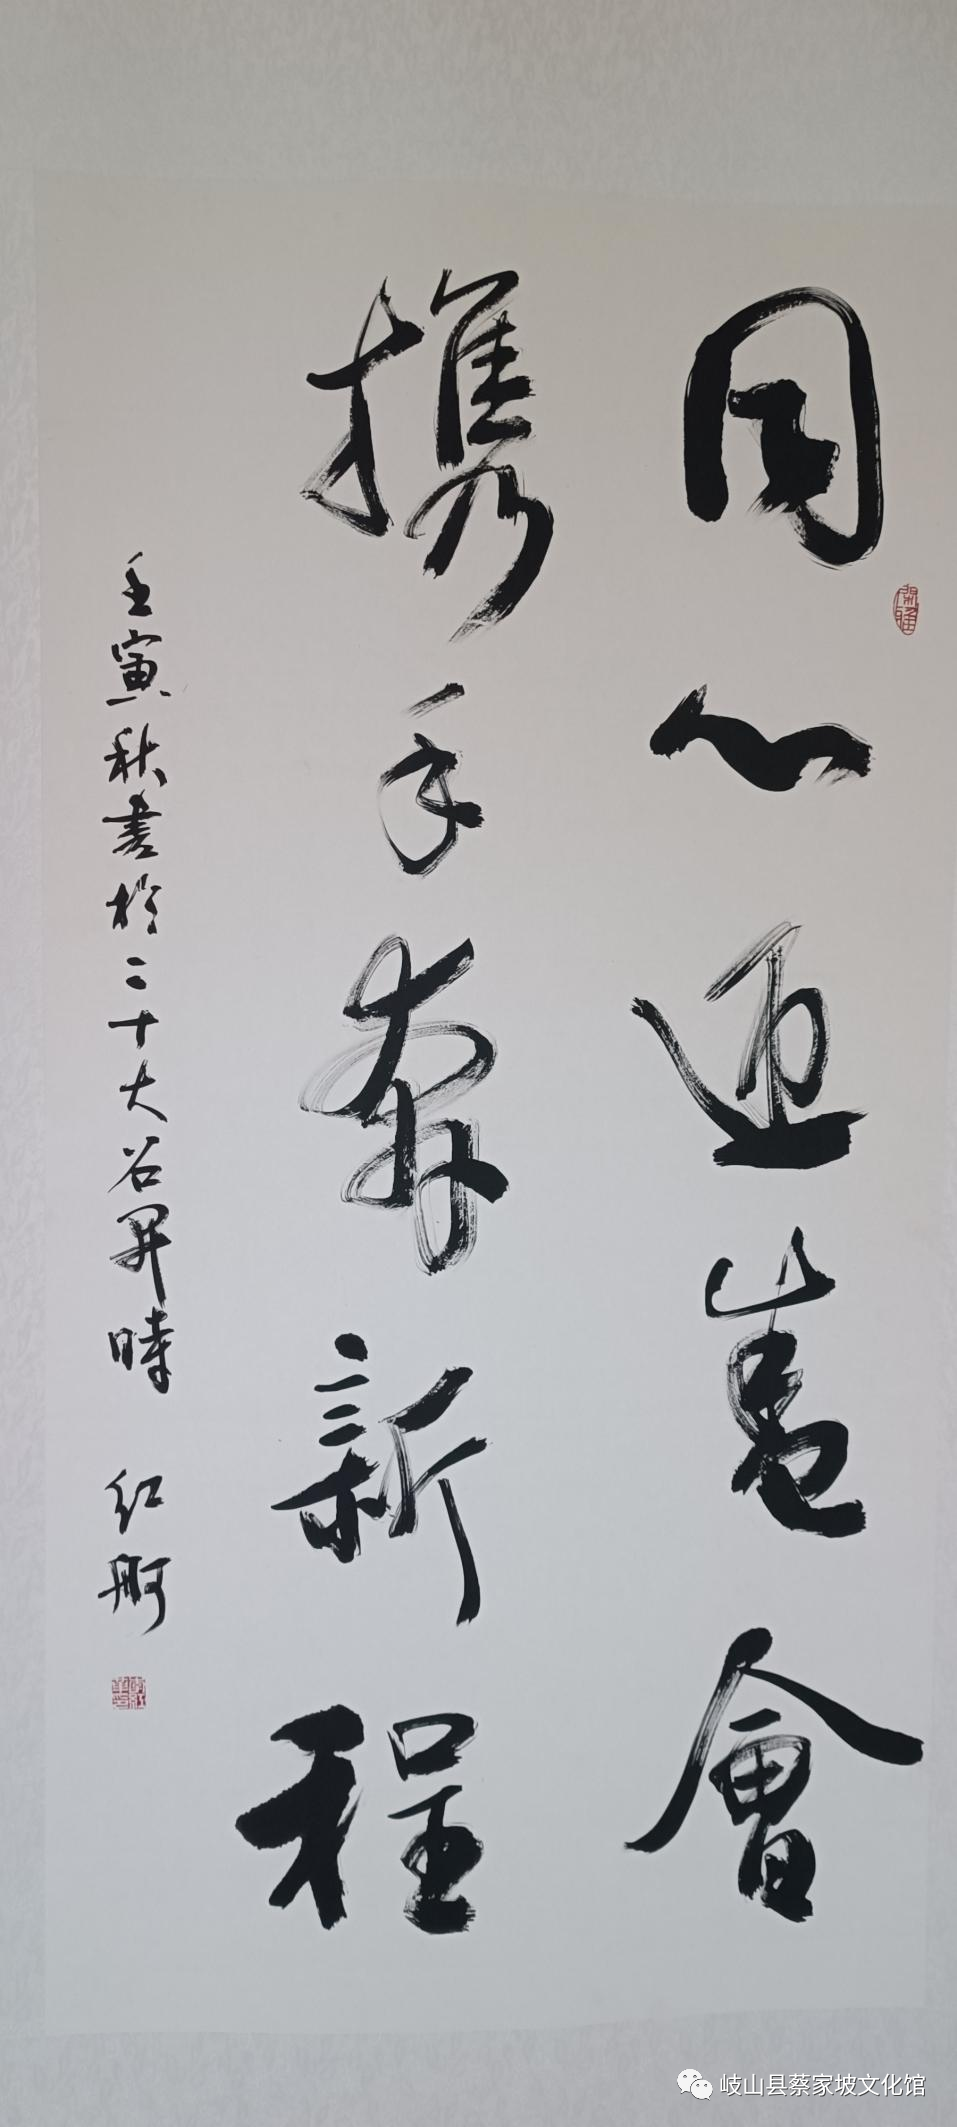 同心迎盛會
携手奔新程
壬寅秋書於二十大召開時 红舸
岐山县蔡家坡文化馆